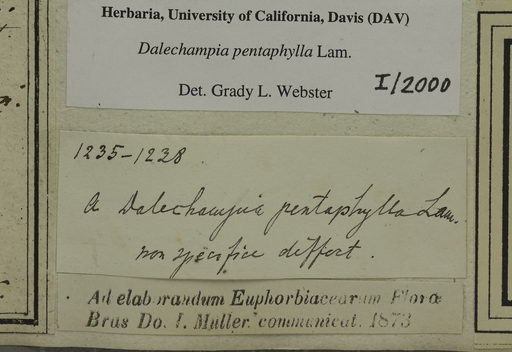 Herbaria, University of California, Davis (DAV)
Dalechampia pentaphylla Lam.
Det. Grady L. Webster I/2000
1235-1238.
A Dalechampia pentaphylla Lam.
non specifice differt.
Ad elaborandum Euphorbiacearum Floræ
Bras Do. I. Muller. communicat. 1873